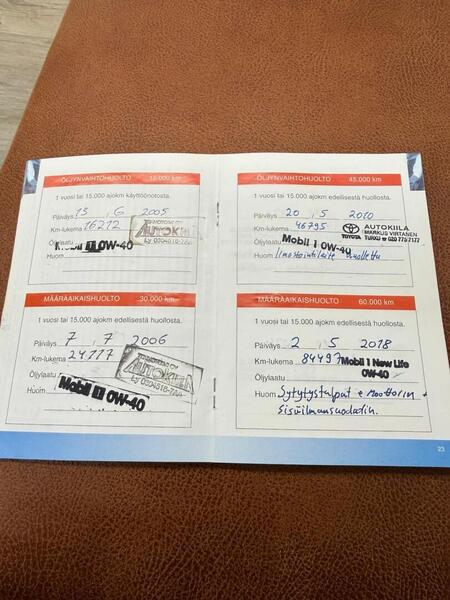 ÖLJYNVAIHTOHUOLTO 15.000 km
1 vuosi tai 15.000 ajokm käyttöönotosta.
Päiväys 13 6 2005
Km-lukema 16212
AUTOKIILA
Ly 0204616-7
Öljylaatu Mobil 1 0W-40
Huom
MÄÄRÄAIKAISHUOLTO 30.000 km
1 vuosi tai 15.000 ajokm edellisestä huollosta.
Päiväys 7 7 2006
Km-lukema 24717
AUTOKIILA
Ly 0204616-7
Öljylaatu
Huom Mobil 1 0W-40
ÖLJYNVAIHTOHUOLTO 45.000 km
1 vuosi tai 15.000 ajokm edellisestä huollosta.
Päiväys 20 5 2010
Km-lukema 46795
TOYOTA AUTOKIILA
MARKUS VIRTANEN
TURKU
Öljylaatu Mobil 1 0W-40
Huom Ilmastointilaite huollettu
MÄÄRÄAIKAISHUOLTO 60.000 km
1 vuosi tai 15.000 ajokm edellisestä huollosta.
Päiväys 2 5 2018
Km-lukema 84497 Mobil 1 New Life
Öljylaatu 0W-40
Huom Sytytystulpat + moottorin +
sisäilmansuodatin.
23